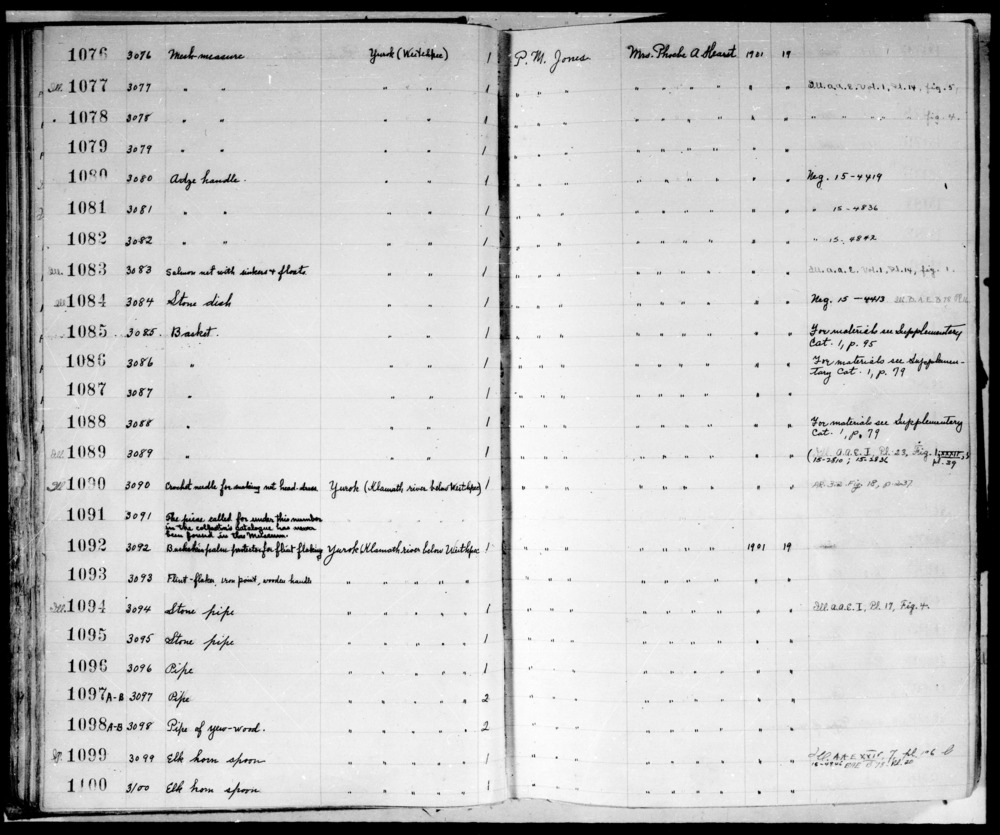 1076 3076 Mesh-measure Yurok (Weitchpec) 1 P. M. Jones Mrs. Phoebe A Hearst 1901 19
Ill. 1077 3077 " " " " 1 " " " " " " " " " Ill. A.A.E. Vol. 1, Pl. 14, fig. 5,
" 1078 3078 " " " " 1 " " " " " " " " " " " " " fig. 4.
1079 3079 " " " " 1 " " " " " " " " "
1080 3080 Adze handle. " " 1 " " " " " " " " " Neg. 15-4419
1081 3081 " " " " 1 " " " " " " " " " " 15-4836
1082 3082 " " " " 1 " " " " " " " " " " 15-4842
Ill. 1083 3083 Salmon net with sinkers & floats " " 1 " " " " " " " " " Ill. A.A.E. Vol. 1, Pl. 14, fig. 1.
Ill. 1084 3084 Stone dish " " 1 " " " " " " " " " Neg. 15-4413 Ill. B.A.E. B 78
1085 3085. Basket. " " 1 " " " " " " " " " For materials see Supplementary
Cat. 1, p. 95
1086 3086 " " " 1 " " " " " " " " " For materials see Supplemen-
tary Cat. 1, p. 79
1087 3087 " " " 1 " " " " " " " " "
1088 3088 " " " 1 " " " " " " " " " For materials see Supplementary
Cat. 1, p. 79
Ill. 1089 3089 " " " 1 " " " " " " " " " A.A.E. I, Pl. 23, Fig. 1,
(15-2810; 15-2836 p. 39
Ill. 1090 3090 Crochet needle for making net head-dress Yurok (Klamath river below Weitchpec) 1 " " " " " " " " " Fig 18, p 237
1091 3091 The piece called for under this number
in the collector's catalogue has never
been found in this Museum
1092 3092 Buckskin palm protector for flint flaking Yurok (Klamath river below Weitchpec 1 " " " " " " " 1901 19
1093 3093 Flint-flaker, iron point, wooden handle " " " " " 1 " " " " " " " " "
Ill. 1094 3094 Stone pipe " " " " " 1 " " " " " " " " " Ill. A.A.E. I, Pl. 17, Fig. 4.
1095 3095 Stone pipe " " " " " 1 " " " " " " " " "
1096 3096 Pipe " " " " " 1 " " " " " " " " "
1097 A-B 3097 Pipe " " " " " 2 " " " " " " " " "
1098 A-B 3098 Pipe of yew-wood. " " " " " 2 " " " " " " " " "
1099 3099 Elk horn spoon " " " " " 1 " " " " " " " " " Ill. A.A.E. XXIV, 7, pl 6 b
1100 3100 Elk horn spoon " " " " " 1 " " " " " " " " "